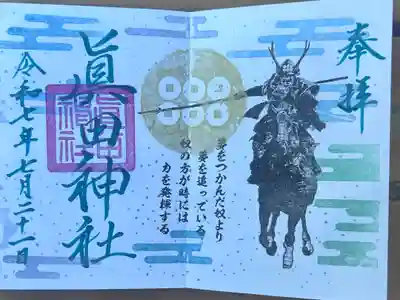 奉拝
夢をつかんだ奴より
夢を追っている
奴の方が時には
力を発揮する
眞田神社
令和七年七月二十一日